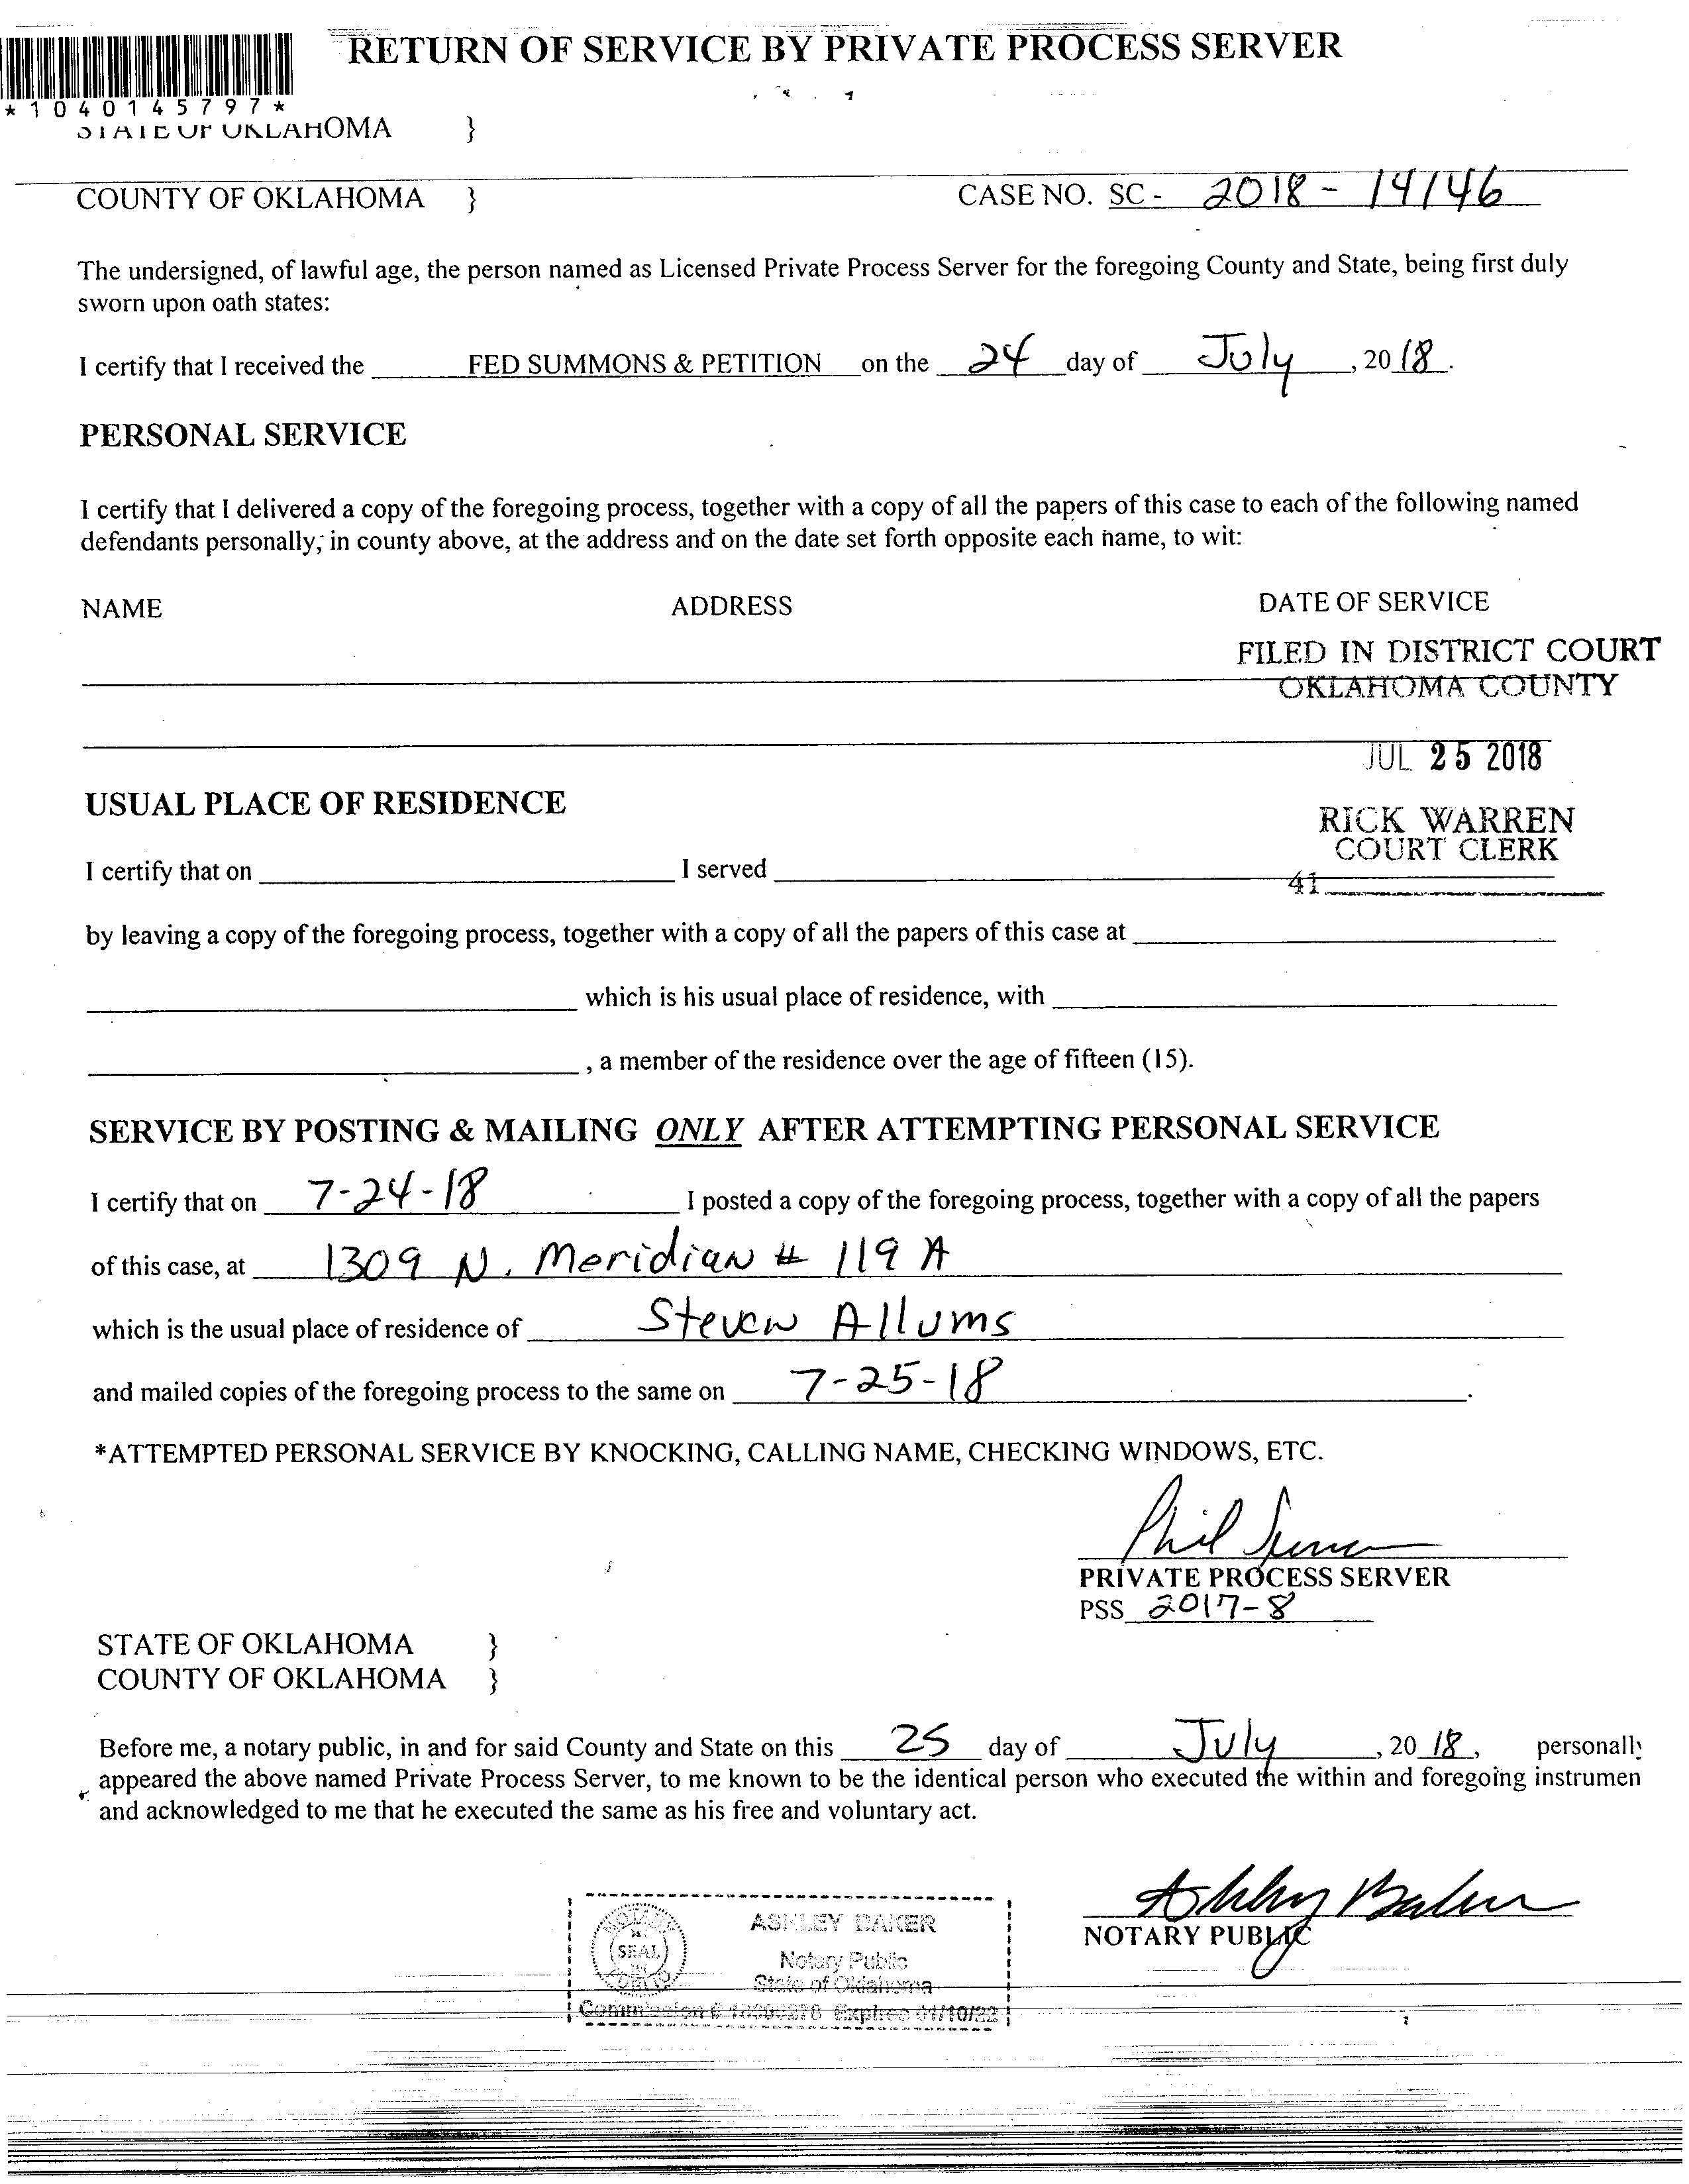 RETURN OF SERVICE BY PRIVATE PROCESS SERVER
*1040145797*
STATE OF OKLAHOMA }
COUNTY OF OKLAHOMA } CASE NO. SC - 2018 - 14146
The undersigned, of lawful age, the person named as Licensed Private Process Server for the foregoing County and State, being first duly
sworn upon oath states:
I certify that I received the FED SUMMONS & PETITION on the 24 day of July , 20 18 .
PERSONAL SERVICE
I certify that I delivered a copy of the foregoing process, together with a copy of all the papers of this case to each of the following named
defendants personally, in county above, at the address and on the date set forth opposite each name, to wit:
NAME ADDRESS DATE OF SERVICE
FILED IN DISTRICT COURT
OKLAHOMA COUNTY
JUL 25 2018
USUAL PLACE OF RESIDENCE
RICK WARREN
COURT CLERK
I certify that on I served
41
by leaving a copy of the foregoing process, together with a copy of all the papers of this case at
which is his usual place of residence, with
, a member of the residence over the age of fifteen (15).
SERVICE BY POSTING & MAILING ONLY AFTER ATTEMPTING PERSONAL SERVICE
I certify that on 7-24-18 I posted a copy of the foregoing process, together with a copy of all the papers
of this case, at 1309 N. Meridian # 119 A
which is the usual place of residence of Steven Allums
and mailed copies of the foregoing process to the same on 7-25-18 .
*ATTEMPTED PERSONAL SERVICE BY KNOCKING, CALLING NAME, CHECKING WINDOWS, ETC.
Phil
PRIVATE PROCESS SERVER
PSS 2017-8
STATE OF OKLAHOMA }
COUNTY OF OKLAHOMA }
Before me, a notary public, in and for said County and State on this 25 day of July , 20 18 , personally
appeared the above named Private Process Server, to me known to be the identical person who executed the within and foregoing instrumen
and acknowledged to me that he executed the same as his free and voluntary act.
Ashley Baker
NOTARY PUBLIC
ASHLEY BAKER
NOTARY SEAL PUBLIC
Notary Public
State of Oklahoma
Commission # Expires 01/10/22